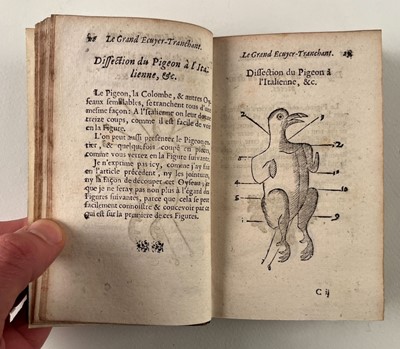 28 Le Grand Ecuyer-Tranchant.
Dissection du Pigeon à l'Ita-
lienne, &c.
Le Pigeon, la Colombe, & autres Oy-
seaux semblables, se tranchent tous d'une
mesme façon: A l'Italienne on leur donne
treize coups, comme il est facile de voir
en la Figure.
L'on peut aussi presenter le Pigeon en-
tier, & quelquefois coupé en pieces,
comme vous verrez en la Figure suivante.
Je n'exprime pas icy, j'ay fait
en l'article précedent, ny les jointures,
ny la façon de découper cet Oyseau,
que je ne feray pas non plus à l'égard des
Figures suivantes, parce que cela se peut
facilement connoistre & concevoir par ce
qui est sur la premiere de ces Figures.
Le Grand Ecuyer-Tranchant.
Dissection du Pigeon à
l'Italienne, &c.
C ij